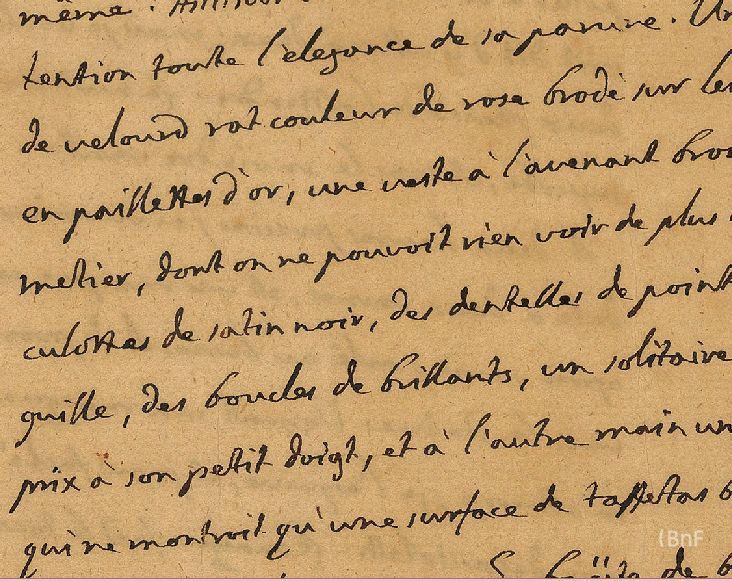 même.
tention toute l'elegance de sa parure. Un
de velours ras couleur de rose brodè sur le
en paillettes d'or, une veste à l'avenant bro
metier, dont on ne pouvoit rien voir de plus
culottes de satin noir, des dentelles de point
guille, des boucles de brillants, un solitaire
prix à son petit doigt, et à l'autre main un
qui ne montroit qu'une surface de taffetas b
de b
(BnF